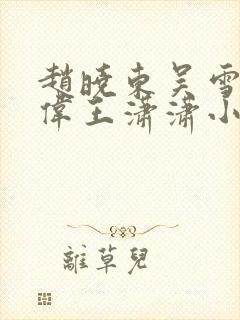 趙曉東吳雪
偉王瀟瀟小
離草兒